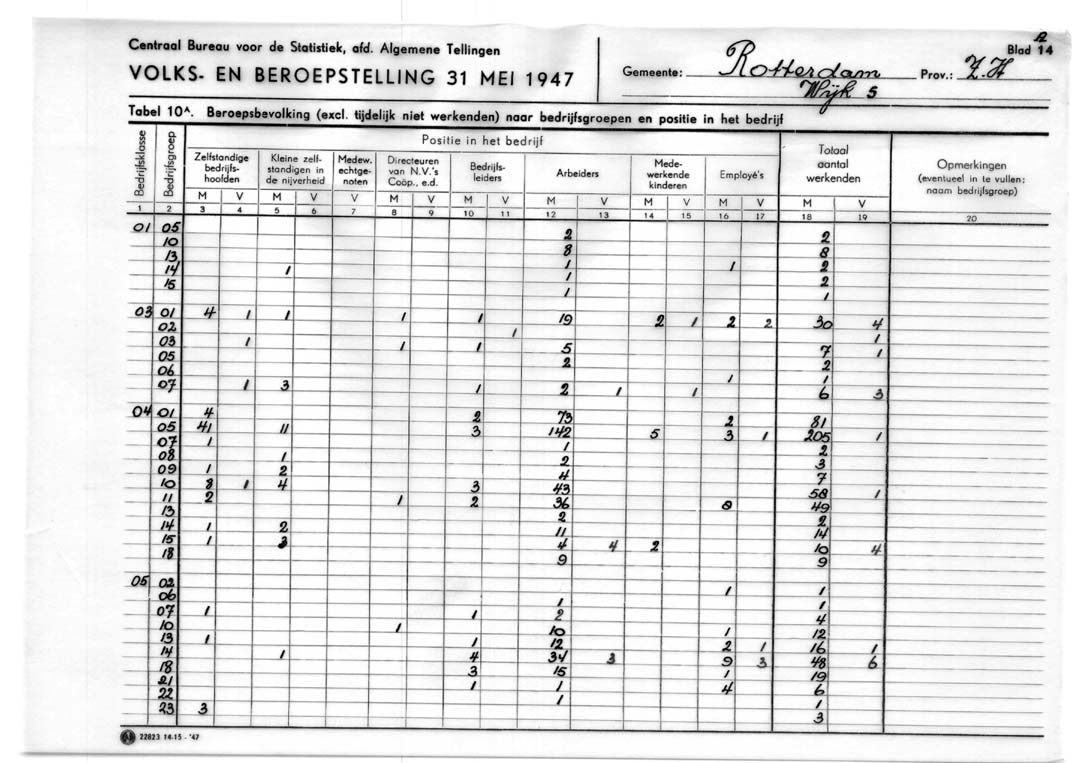 Centraal Bureau voor de Statistiek, afd. Algemene Tellingen
VOLKS- EN BEROEPSTELLING 31 MEI 1947
Gemeente: Rotterdam Prov.: Z.H
Wijk 5
Blad 14
Tabel 10A. Beroepsbevolking (excl. tijdelijk niet werkenden) naar bedrijfsgroepen en positie in het bedrijf
Bedrijfsklasse Bedrijfsgroep Positie in het bedrijf Totaal aantal werkenden Opmerkingen (eventueel in te vullen: naam bedrijfsgroep)
Zelfstandige bedrijfs-hoofden Kleine zelf-standigen in de nijverheid Medew. echtge-noten Directeuren van N.V.'s Coöp., e.d. Bedrijfs-leiders Arbeiders Mede-werkende kinderen Employé's
M V M V V M V M V M V M V M V M V
1 2 3 4 5 6 7 8 9 10 11 12 13 14 15 16 17 18 19 20
01 05 2 2
10 8 8
13 1 1 2
14 1 1 2
15 1 1
03 01 4 1 1 1 1 19 2 1 2 2 30 4
02 1 1
03 1 1 1 5 7 1
05 2 2
06 1 1
07 1 3 1 2 1 1 6 3
04 01 4 2 73 2 81
05 41 11 3 142 5 3 1 205 1
07 1 1 2
08 1 2 3
09 1 2 4 7
10 8 1 4 3 43 58 1
11 2 1 2 36 8 49
13 2 2
14 1 2 11 14
15 1 3 4 4 2 10 4
18 9 9
05 02 1 1
06 1 1
07 1 1 2 4
10 1 10 1 12
13 1 1 12 2 1 16 1
14 1 4 34 3 9 3 48 6
18 3 15 1 19
21 1 1 4 6
22 1 1
23 3 3
22823 14-15 - '47